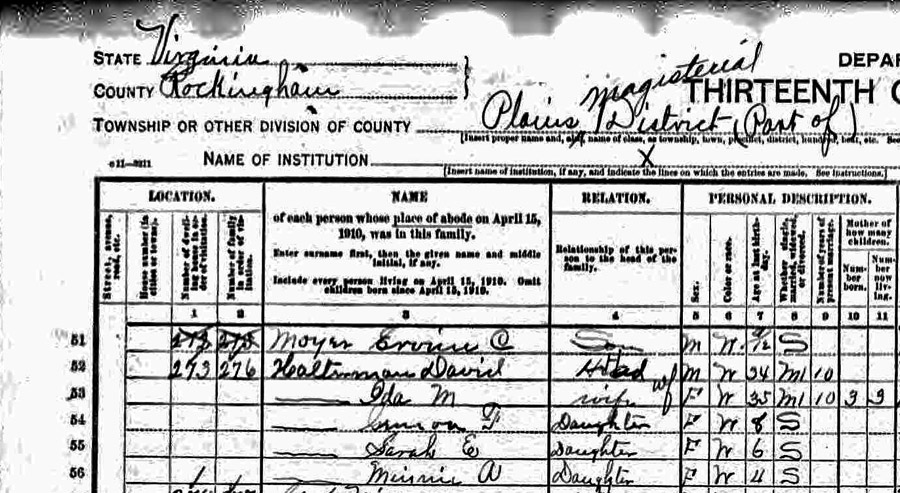 STATE Virginia DEPAR
COUNTY Rockingham THIRTEENTH C
TOWNSHIP OR OTHER DIVISION OF COUNTY Plains Magisterial District (Part of)
[Insert proper name and, also, name of class, as township, town, precinct, district, hundred, beat, etc. See
c11—3211 NAME OF INSTITUTION X
[Insert name of institution, if any, and indicate the lines on which the entries are made. See instructions.]
LOCATION. NAME RELATION. PERSONAL DESCRIPTION.
Street, avenue, road, etc.
House number (in cities or towns).
Number of dwelling house in order of visitation.
Number of family in order of visitation.
of each person whose place of abode on April 15, 1910, was in this family.
Enter surname first, then the given name and middle initial, if any.
Include every person living on April 15, 1910. Omit children born since April 15, 1910.
Relationship of this person to the head of the family.
Sex.
Color or race.
Age at last birthday.
Whether single, married, widowed, or divorced.
Number of years of present marriage.
Mother of how many children.
Number born. Number now living.
1 2 3 4 5 6 7 8 9 10 11
51 273 275 Moyer Ervin C Son M W S
52 273 276 Halterman David Head M W 34 M1 10
53 Ida M wife F W 35 M1 10 3 3
54 F Daughter F W 8 S
55 Sarah E Daughter F W 6 S
56 Minnie A Daughter F W 4 S